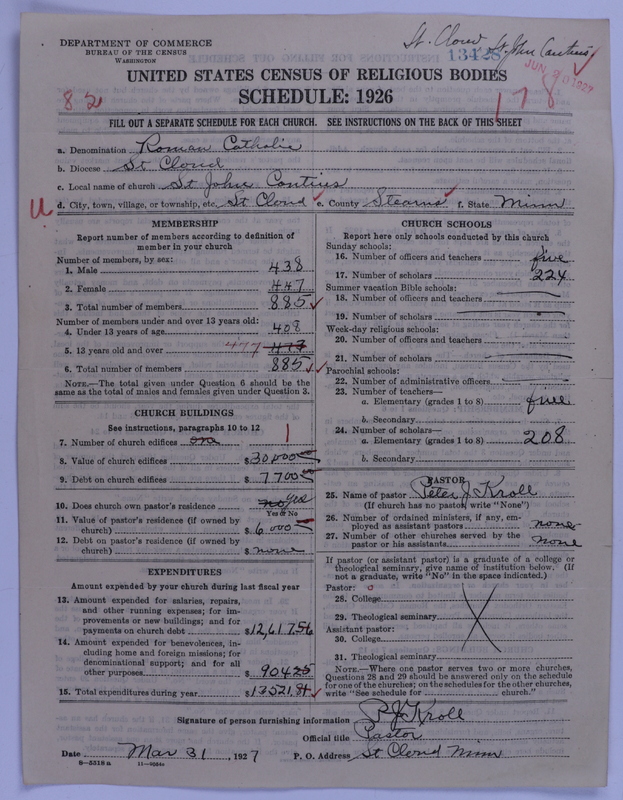 DEPARTMENT OF COMMERCE
BUREAU OF THE CENSUS
WASHINGTON
St. Cloud St John Cantius
13428
JUN 20 1927
UNITED STATES CENSUS OF RELIGIOUS BODIES
SCHEDULE: 1926
82
178
FILL OUT A SEPARATE SCHEDULE FOR EACH CHURCH. SEE INSTRUCTIONS ON THE BACK OF THIS SHEET
a. Denomination Roman Catholic
b. Diocese St Cloud
c. Local name of church St John Cantius
U. d. City, town, village, or township, etc. St Cloud e. County Stearns f. State Minn
MEMBERSHIP
Report number of members according to definition of
member in your church
Number of members, by sex:
1. Male 438
2. Female 447
3. Total number of members 885
Number of members under and over 13 years old:
4. Under 13 years of age 408
5. 13 years old and over 477 473
6. Total number of members 885
NOTE.—The total given under Question 6 should be the
same as the total of males and females given under Question 3.
CHURCH BUILDINGS
See instructions, paragraphs 10 to 12
7. Number of church edifices one 1
8. Value of church edifices $30000 00
9. Debt on church edifices $7700 00
10. Does church own pastor's residence no yes
Yes or No
11. Value of pastor's residence (if owned by
church) $6000
12. Debt on pastor's residence (if owned by
church) $none
EXPENDITURES
Amount expended by your church during last fiscal year
13. Amount expended for salaries, repairs,
and other running expenses; for im-
provements or new buildings; and for
payments on church debt $12,617.56
14. Amount expended for benevolences, in-
cluding home and foreign missions; for
denominational support; and for all
other purposes $904.25
15. Total expenditures during year $13521.81
CHURCH SCHOOLS
Report here only schools conducted by this church
Sunday schools:
16. Number of officers and teachers five
17. Number of scholars 224
Summer vacation Bible schools:
18. Number of officers and teachers
19. Number of scholars
Week-day religious schools:
20. Number of officers and teachers
21. Number of scholars
Parochial schools:
22. Number of administrative officers
23. Number of teachers—
a. Elementary (grades 1 to 8) five
b. Secondary
24. Number of scholars—
a. Elementary (grades 1 to 8) 208
b. Secondary
PASTOR
25. Name of pastor Peter J Kroll
(If church has no pastor, write "None")
26. Number of ordained ministers, if any, em-
ployed as assistant pastors none
27. Number of other churches served by the
pastor or his assistants none
If pastor (or assistant pastor) is a graduate of a college or
theological seminary, give name of institution below. (If
not a graduate, write "No" in the space indicated.)
Pastor: 0
28. College
29. Theological seminary
Assistant pastor:
30. College
31. Theological seminary
NOTE.—Where one pastor serves two or more churches,
Questions 28 and 29 should be answered only on the schedule
for one of the churches; on the schedules for the other churches,
write "See schedule for church."
Signature of person furnishing information P. J. Kroll
Official title Pastor
Date Mar 31, 1927 P. O. Address St Cloud Minn
8—5318 a